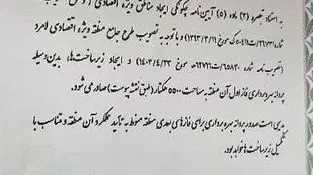 به استناد تبصره (۳) ماده (۵) آیین‌نامه چگونگی ایجاد مناطق ویژه اقتصادی
مورخ ۱۳۹۳/۳/۱۱ و با توجه به تصویب طرح جامع منطقه ویژه اقتصادی لامرد
مورخ ۱۴۰۳/۴/۲۳) و ایجاد زیرساخت‌ها، بدین‌وسیله
پروانه بهره‌برداری فاز اول آن منطقه به مساحت ۵۵۰۰ هکتار (طبق نقشه پیوست) صادر می‌شود.
بدیهی است صدور پروانه بهره‌برداری برای فازهای بعدی منطقه منوط به تائید عملکرد آن منطقه و متناسب با
تکمیل زیرساخت‌ها خواهد بود.